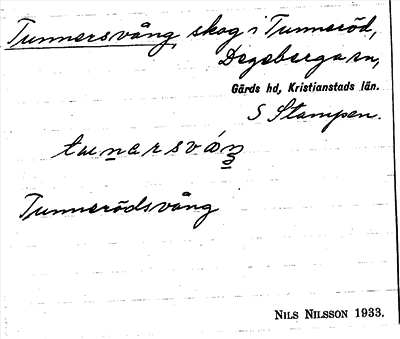 Tunnersvång, skog i Tunneröd,
Degeberga sn,
Gärds hd, Kristianstads län.
S Stampen.
Tunnerödsvång
NILS NILSSON 1933.